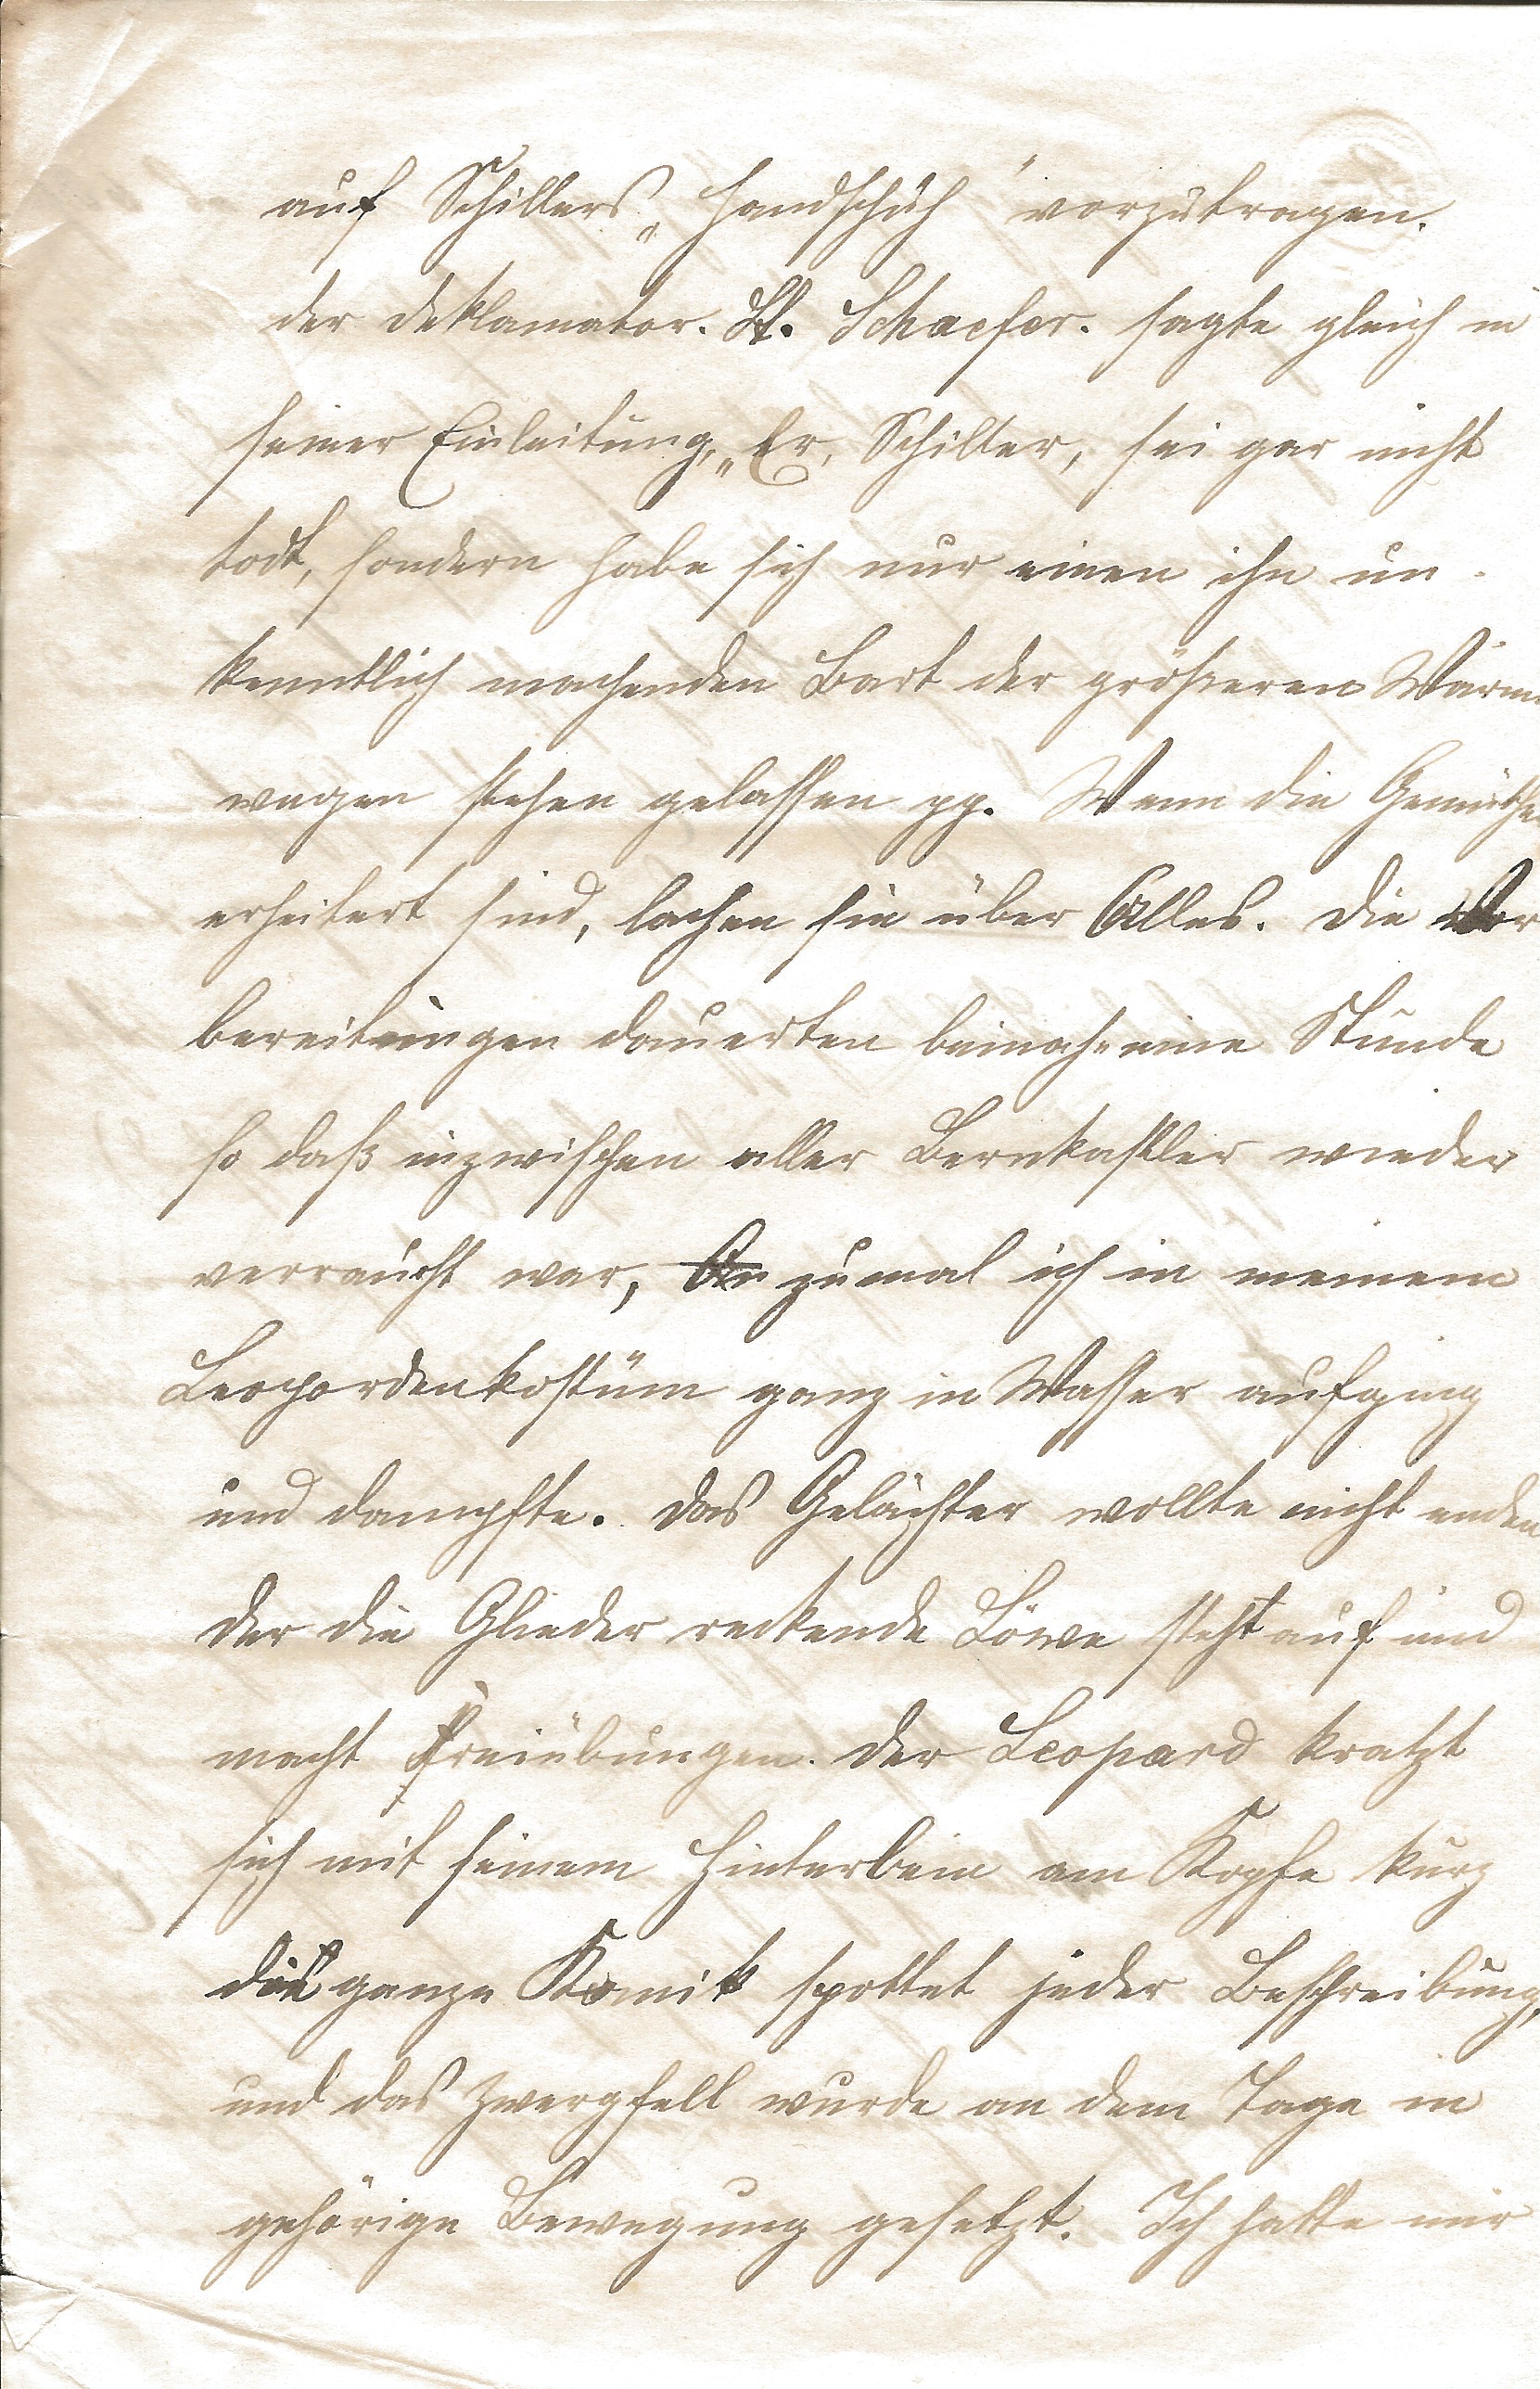 auf Schillers „Handschuh" vorzutragen.
der Deklamator. Lt. Schaefer. sagte gleich in
seiner Einleitung, „Er, Schiller, sei gar nicht
todt, sondern habe sich nur einen ihn un-
kenntlich machenden Bart der größeren Wärme
wegen stehen gelassen pp. Wenn die Gemüther
erheitert sind, lachen sie über Alles. Die Vor
bereitungen dauerten beinah eine Stunde
so daß inzwischen aller Bernkastler wieder
verraucht war, zumal ich in meinem
Leopardenkostüm ganz in Wasser aufging
und dampfte. Das Gelächter wollte nicht enden
Der die Glieder reckende Löwe steht auf und
macht Freiübungen. Der Leopard kratzt
sich mit seinem Hinterbein am Kopfe kurz
die ganze Komik spottet jeder Beschreibung,
und das Zwergfell wurde an dem Tage in
gehörige Bewegung gesetzt. Ich hatte mir